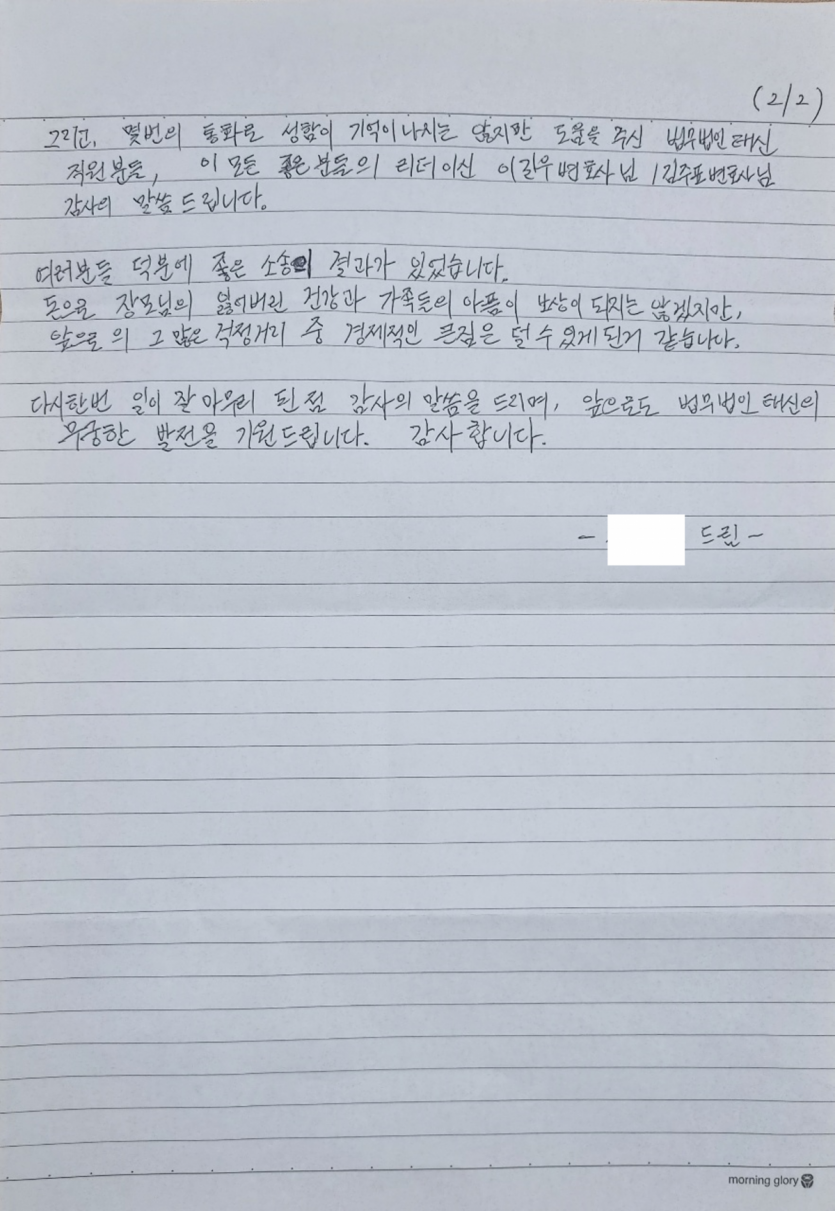 (2/2)
그리고, 몇번의 통화로 성함이 기억이나시는 않지만 도움을 주신 법무법인태신
직원분들, 이 모든 좋은분들의 리더이신 이길우변호사님 / 김주표변호사님
감사의 말씀드립니다.
여러분들 덕분에 좋은 소송의 결과가 있었습니다.
돈으로 장모님의 잃어버린 건강과 가족들의 아픔이 보상이 되지는 않겠지만,
앞으로의 그 많은 걱정거리 중 경제적인 큰짐은 덜 수 있게된거 같습니다.
다시한번 일이 잘 마무리 된점 감사의 말씀을 드리며, 앞으로도 법무법인태신의
무궁한 발전을 기원드립니다. 감사합니다.
- 드림 -
morning glory